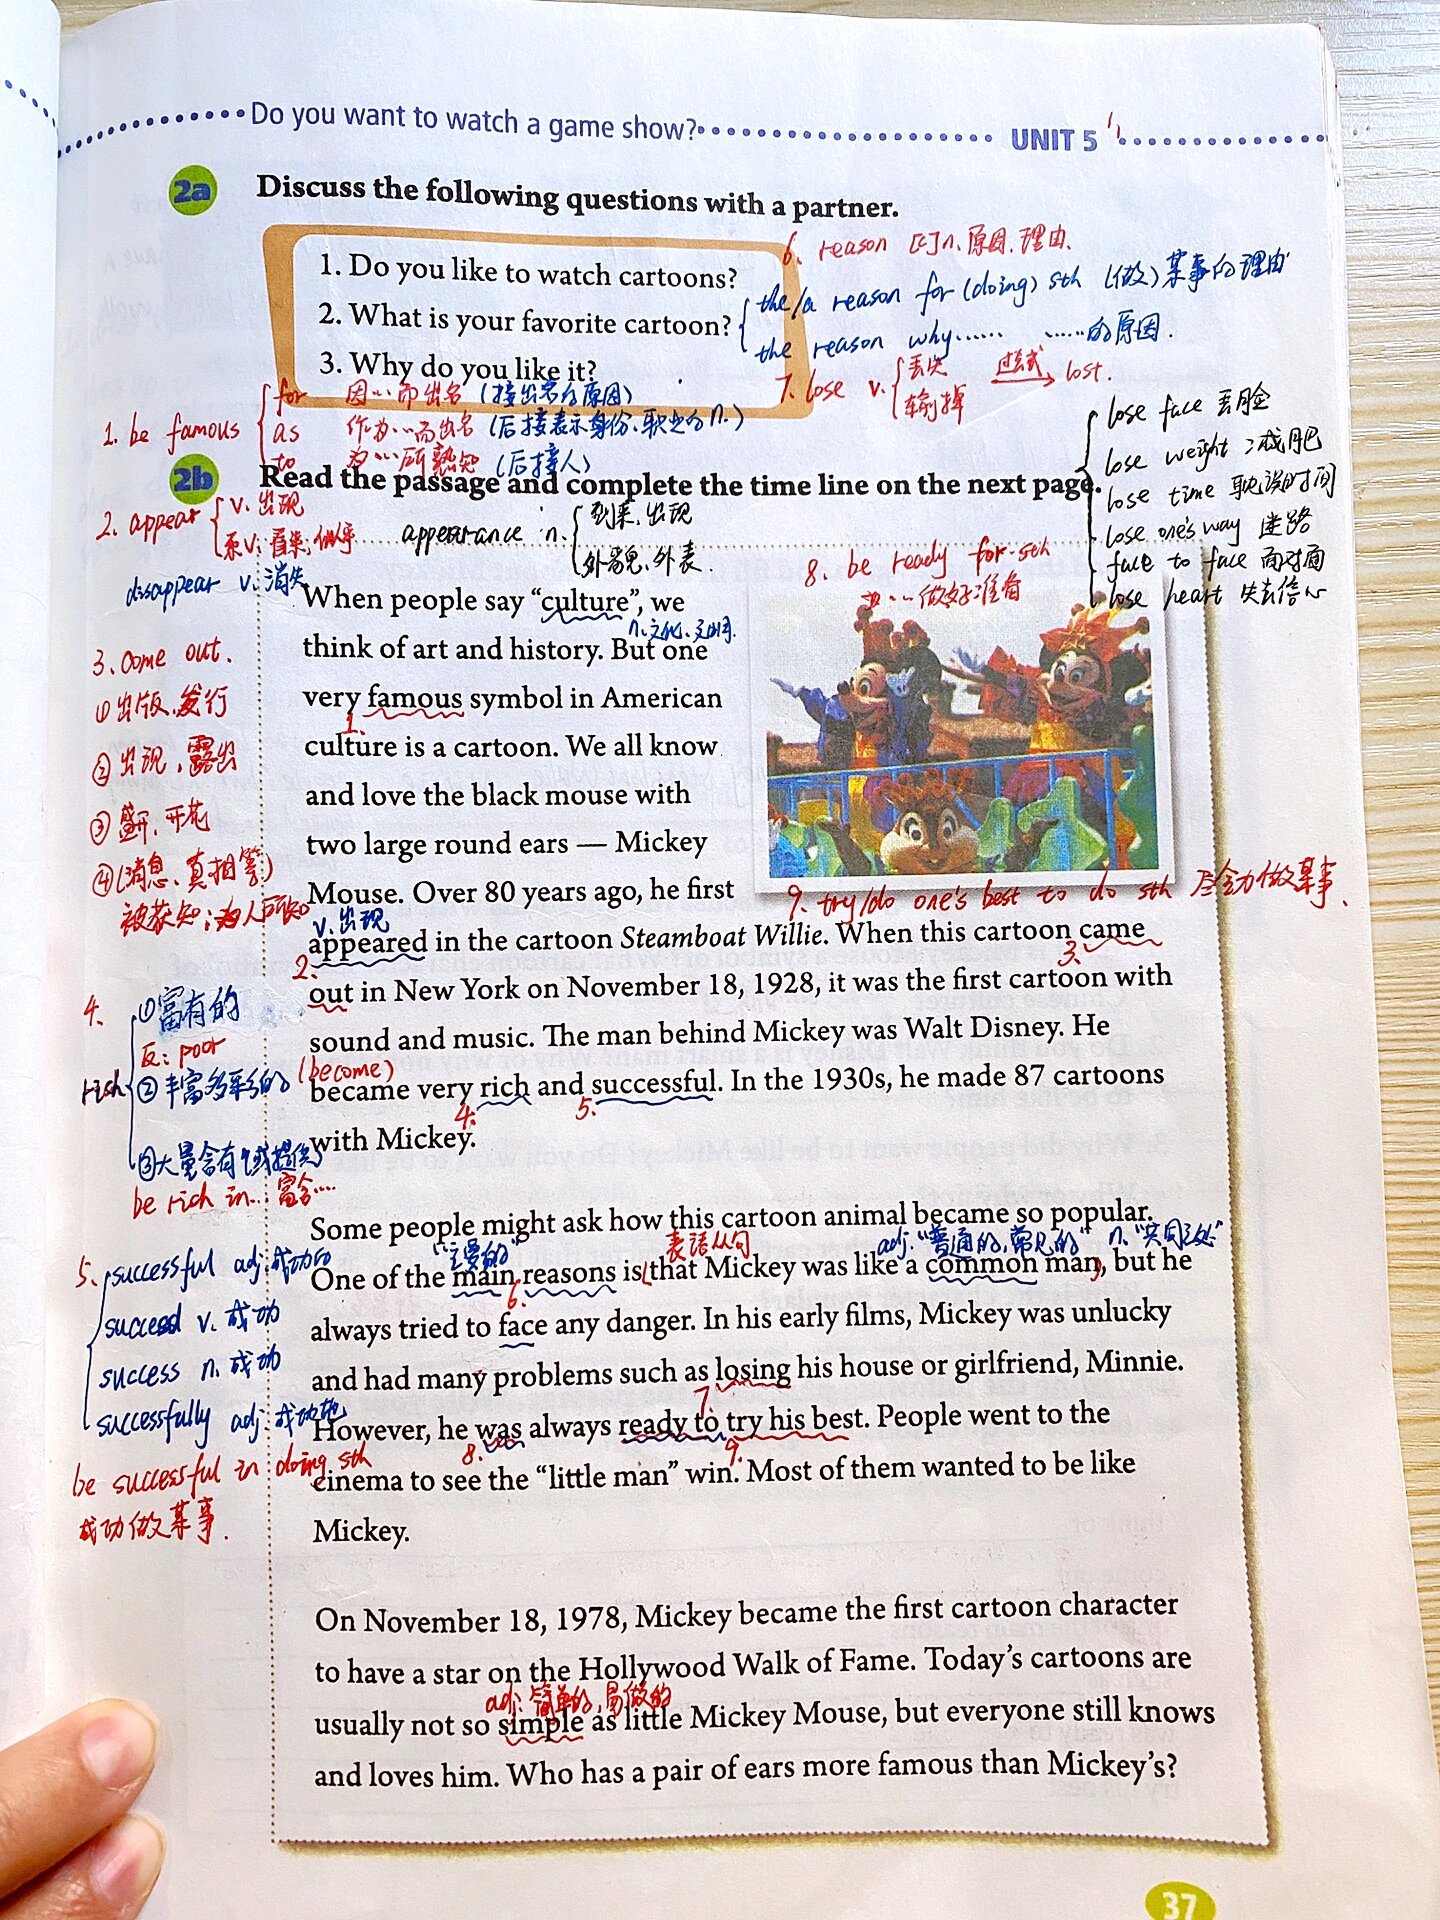 Do you want to watch a game show?
UNIT 5
2a Discuss the following questions with a partner.
1. Do you like to watch cartoons?
2. What is your favorite cartoon?
3. Why do you like it?
6. reason [C]n.原因.理由.
the/a reason for (doing) sth (做)某事的理由
the reason why…… ……的原因.
7. lose v. 丢失 输掉 过去式 lost.
lose face 丢脸
lose weight 减肥
lose time 耽误时间
lose one's way 迷路
face to face 面对面
lose heart 失去信心
1. be famous
for 因…而出名 (接出名的原因)
as 作为…而出名 (后接表示身份、职业的n.)
to 为…所熟知 (后接人)
2b Read the passage and complete the time line on the next page.
2. appear v. 出现
系v: 看来, 似乎
disappear v. 消失
appearance n. 到来, 出现
外貌、外表.
8. be ready for sth
为…做好准备
When people say “culture”, we
n.文化、文明.
think of art and history. But one
very famous symbol in American
1.
culture is a cartoon. We all know
and love the black mouse with
two large round ears — Mickey
Mouse. Over 80 years ago, he first
v. 出现
appeared in the cartoon Steamboat Willie. When this cartoon came
2.
3.
out in New York on November 18, 1928, it was the first cartoon with
sound and music. The man behind Mickey was Walt Disney. He
(become)
became very rich and successful. In the 1930s, he made 87 cartoons
4.
5.
with Mickey.
3. come out.
①出版、发行
②出现, 露出
③盛开、开花
④(消息、真相等)
被获知; 为人所知
9. try/do one's best to do sth 尽全力做某事.
4.
rich
①富有的
反: poor
②丰富多彩的
③大量含有(或提供)
be rich in… 富含…
Some people might ask how this cartoon animal became so popular.
“主要的”
表语从句
adj. “普通的, 常见的” n. “共同之处”
One of the main reasons is that Mickey was like a common man, but he
6.
always tried to face any danger. In his early films, Mickey was unlucky
and had many problems such as losing his house or girlfriend, Minnie.
7.
However, he was always ready to try his best. People went to the
8.
9.
cinema to see the “little man” win. Most of them wanted to be like
Mickey.
5. successful adj. 成功的
succeed v. 成功
success n. 成功
successfully adj. 成功地
be successful in doing sth
成功做某事.
On November 18, 1978, Mickey became the first cartoon character
to have a star on the Hollywood Walk of Fame. Today’s cartoons are
adj. 简单的, 易做的
usually not so simple as little Mickey Mouse, but everyone still knows
and loves him. Who has a pair of ears more famous than Mickey’s?
37